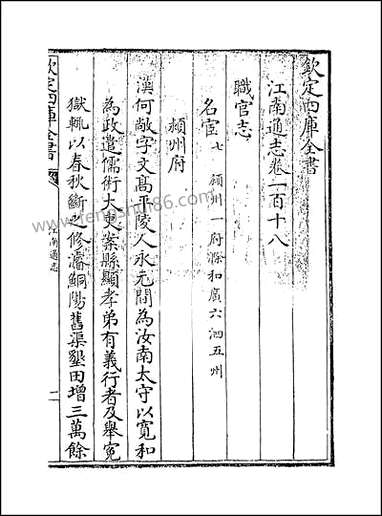 欽定四庫全書
江南通志卷一百十八
職官志
名宦七 潁州一府滁和廣六泗五州
潁州府
漢何敞字文高平陵人永元間為汝南太守以寬和
為政遣儒術大吏案縣顯孝弟有義行者及舉冤
獄輒以春秋斷之修濬鮦陽舊渠墾田增三萬餘
欽定四庫全書
江南通志
一
www.fengshui86.com